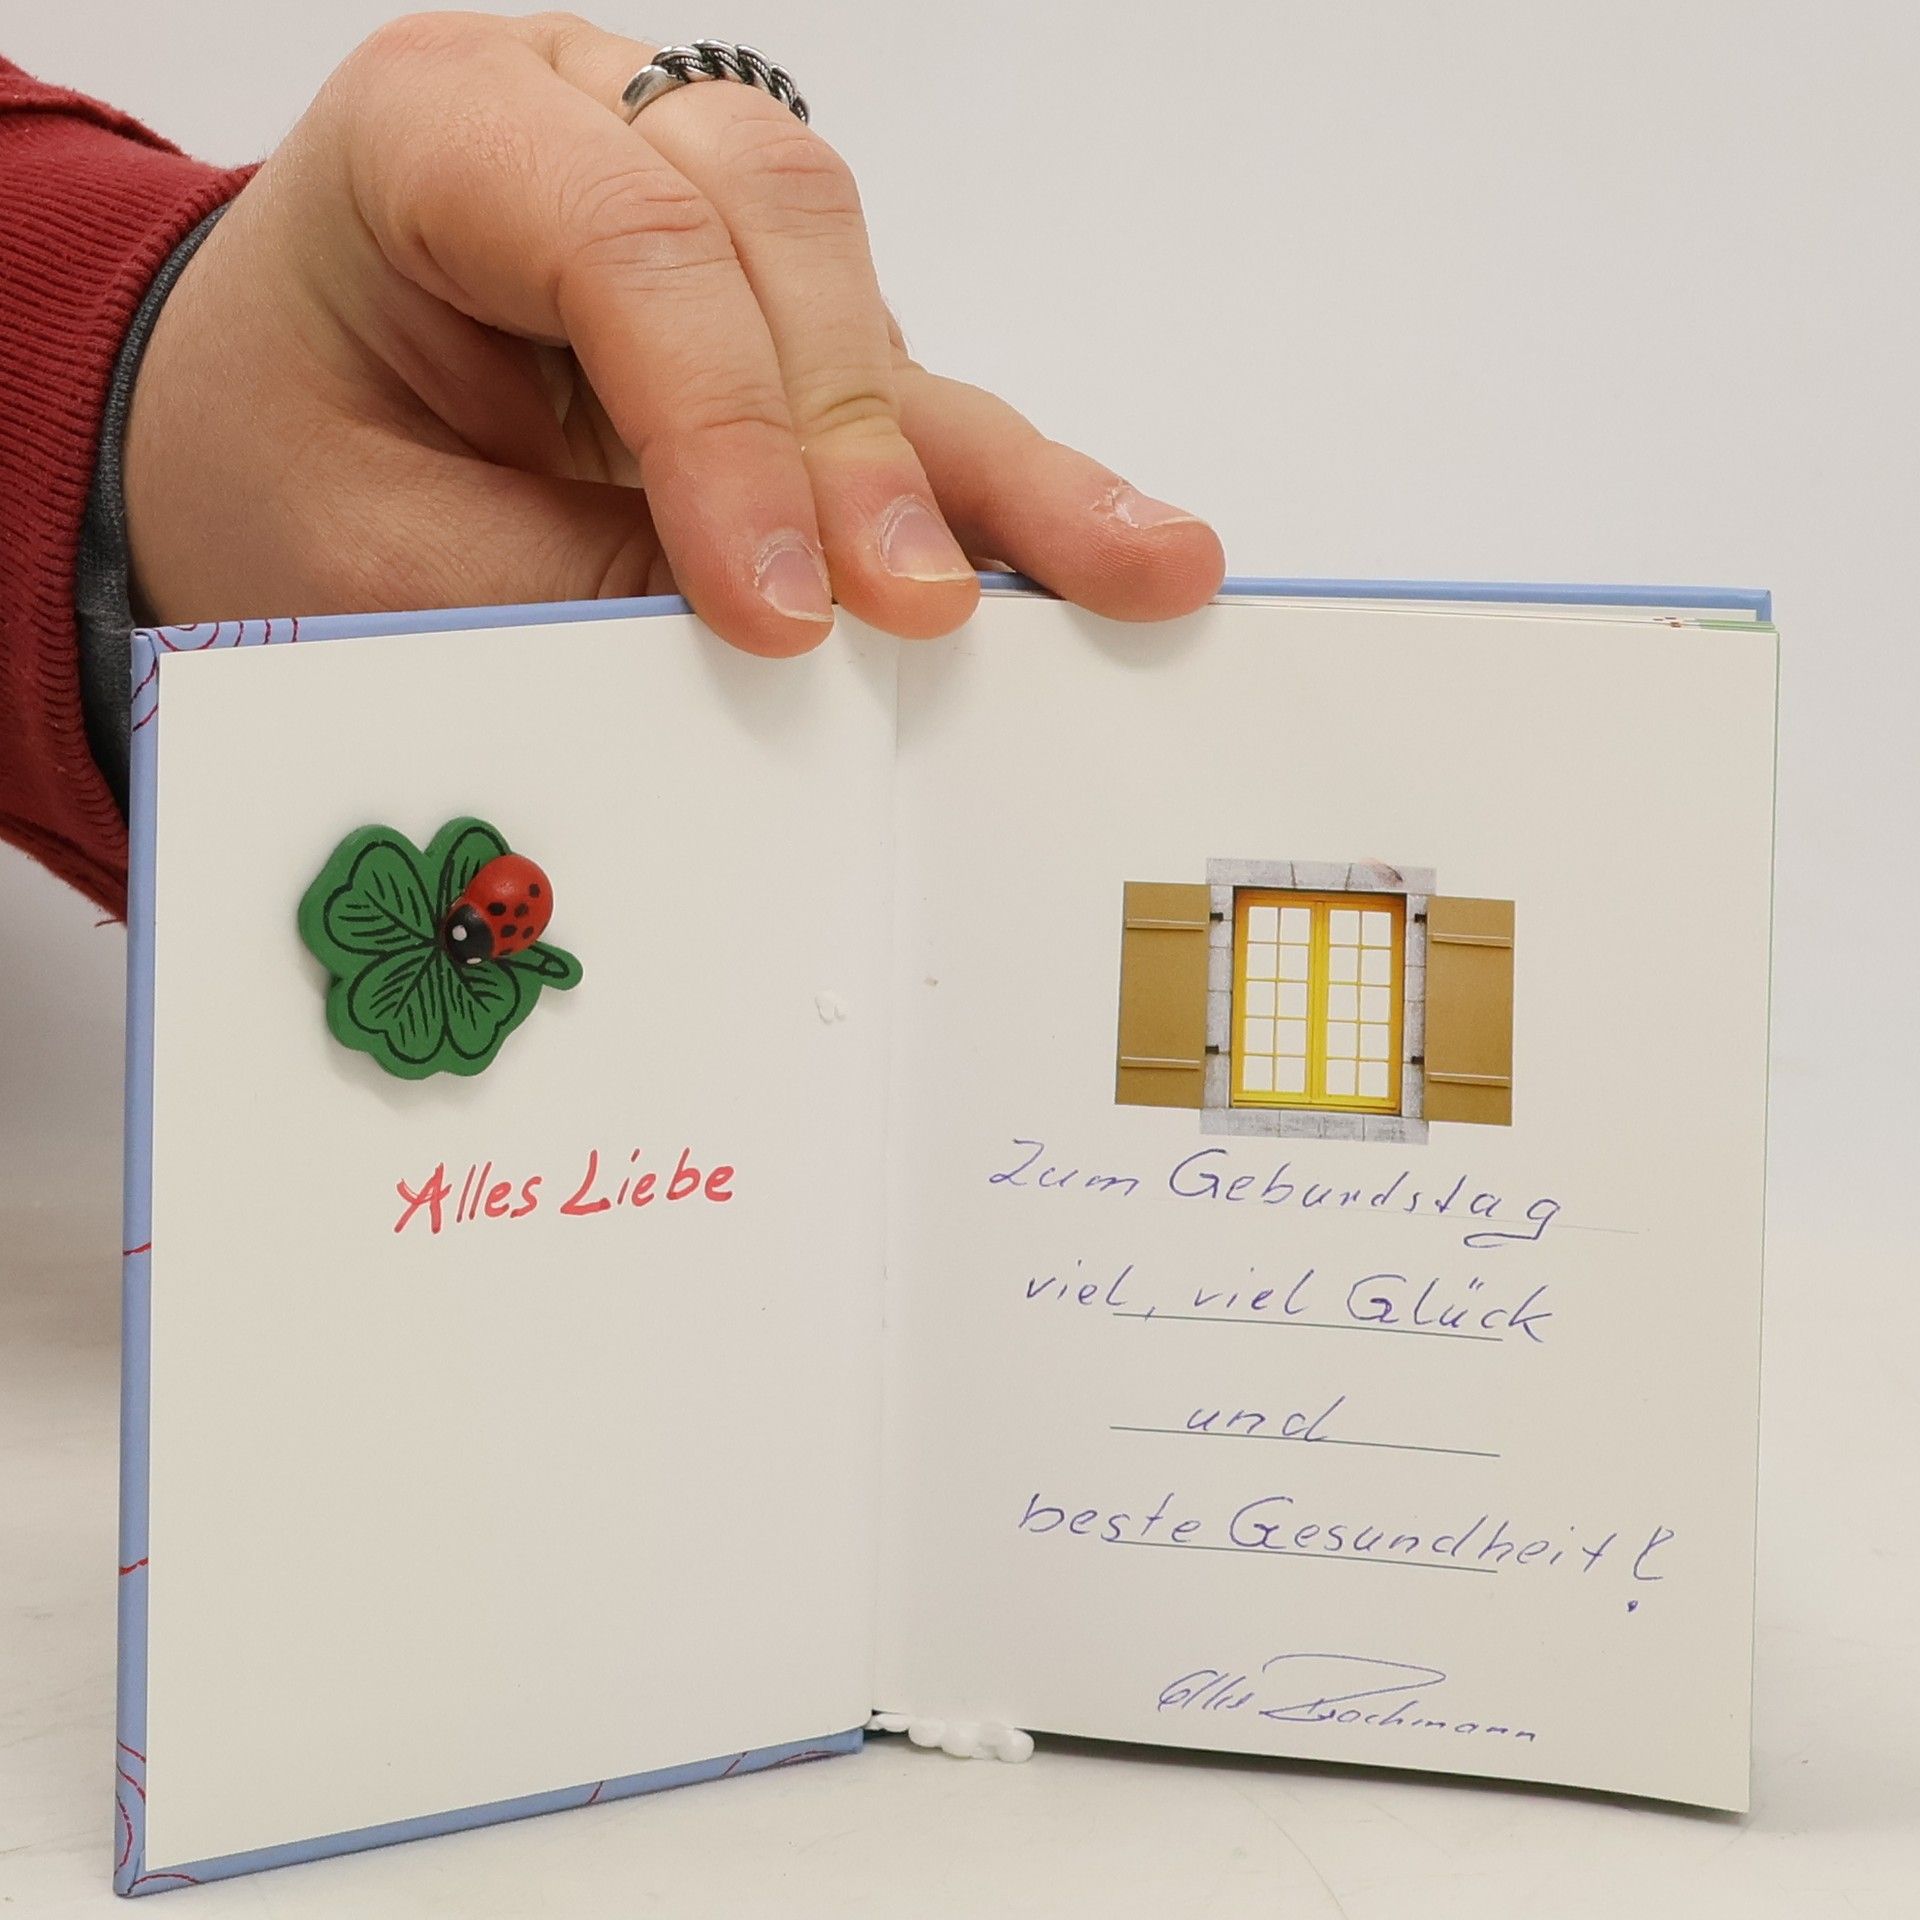 Alles Liebe
Zum Geburdstag
viel, viel Glück
und
beste Gesundheit!